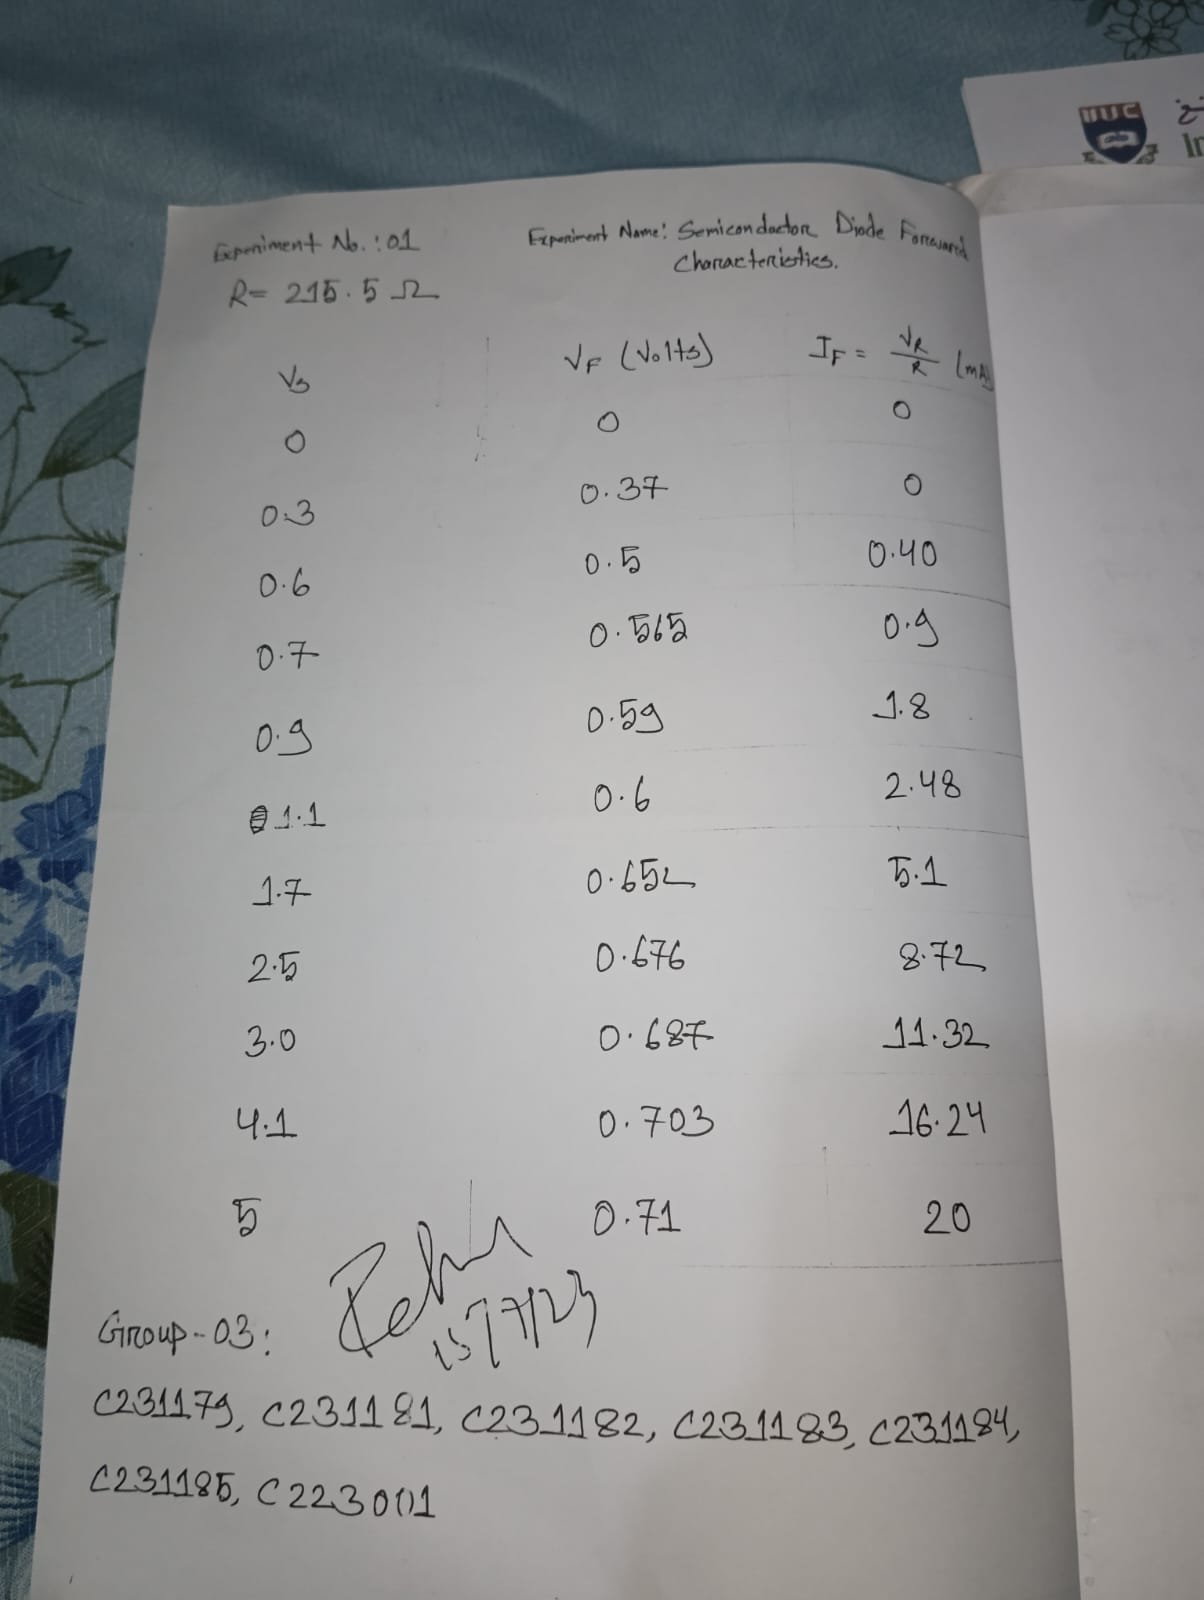 IIUC
In
Experiment No. : 01 Experiment Name: Semiconductor Diode Forward
Characteristics.
R= 215.5 Ω
Vs VF (Volts) IF = VR/R (mA)
0 0 0
0.3 0.37 0
0.6 0.5 0.40
0.7 0.565 0.9
0.9 0.59 1.8
1.1 0.6 2.48
1.7 0.652 5.1
2.5 0.676 8.72
3.0 0.687 11.32
4.1 0.703 16.24
5 0.71 20
15/7/23
Group-03:
C231179, C231181, C231182, C231183, C231184,
C231185, C223001